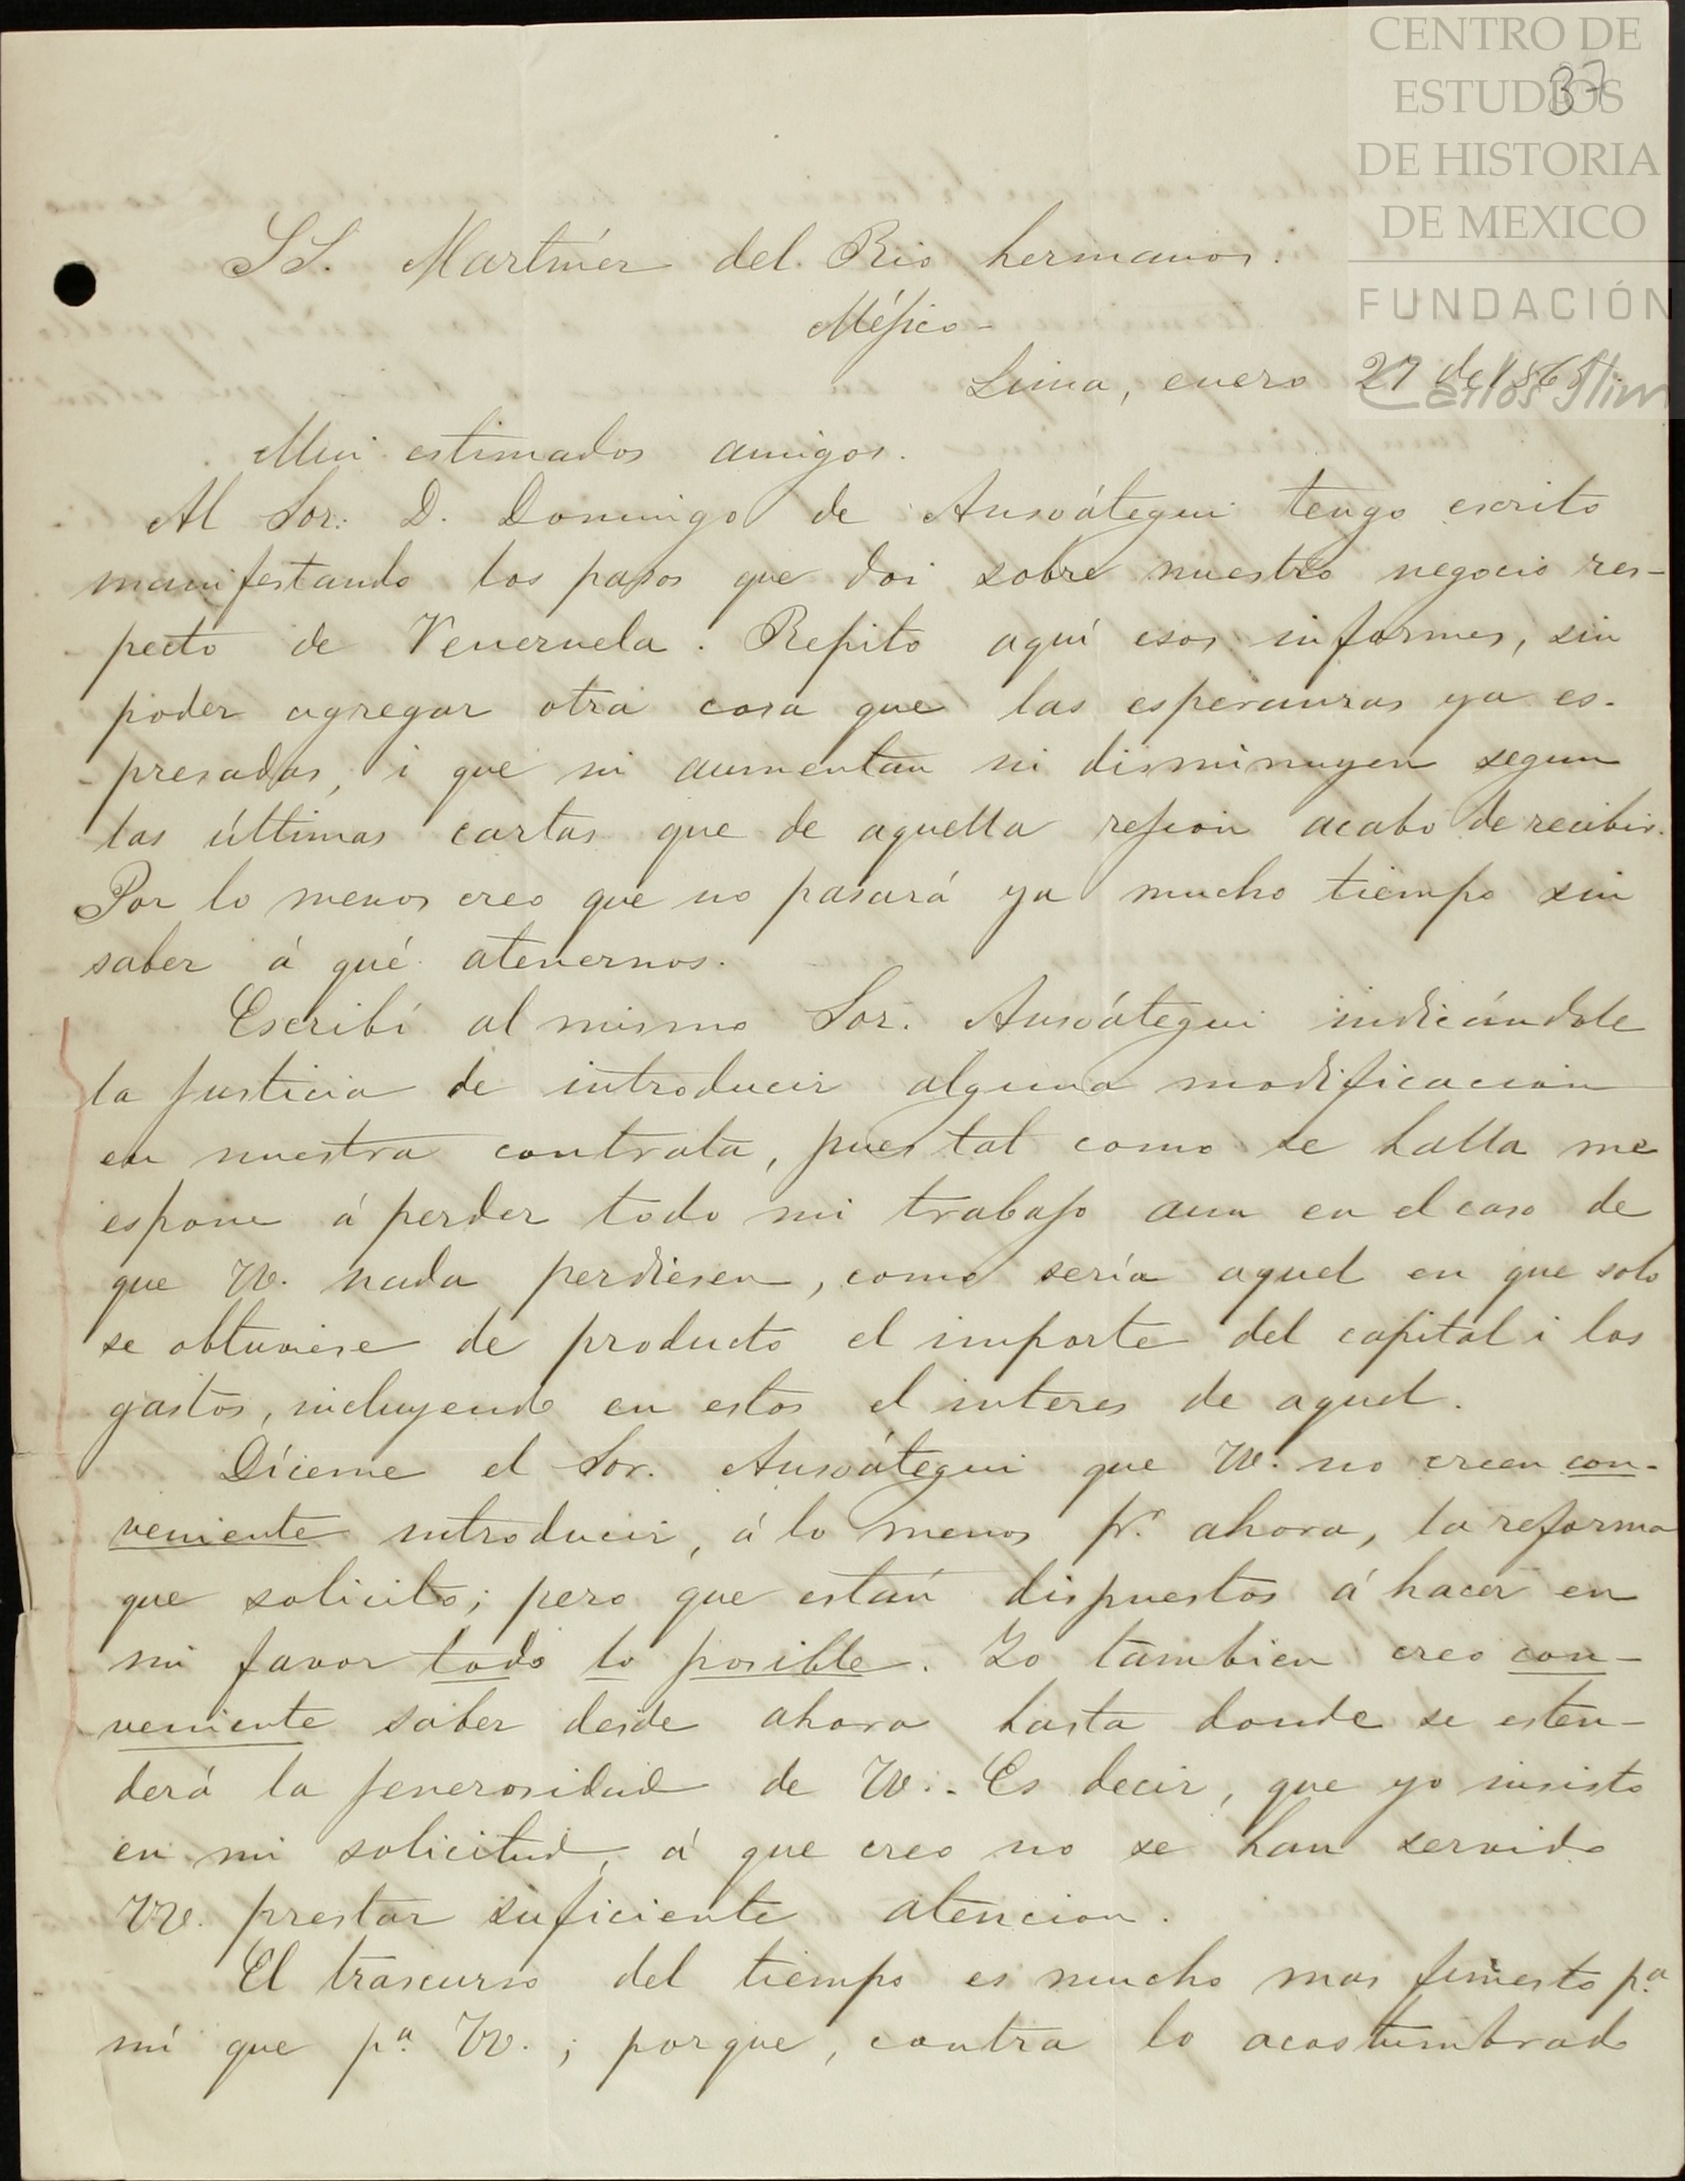 CENTRO DE
ESTUDIOS
DE HISTORIA
DE MEXICO
FUNDACIÓN
Carlos Slim
37
SS. Martínez del Rio hermanos.
Méjico-
Lima, enero 27 de 1865.
Mui estimados amigos.
Al Sor. D. Domingo de Ansoátegui tengo escrito
manifestando los pasos que doi sobre nuestro negocio res-
pecto de Venezuela. Repito aquí esos informes, sin
poder agregar otra cosa que las esperanzas ya es-
presadas, i que ni aumentan ni disminuyen segun
las últimas cartas que de aquella rejion acabo de recibir.
Por lo menos creo que no pasará ya mucho tiempo sin
saber á qué atenernos.
Escribí al mismo Sor. Ansoátegui indicándole
la justicia de introducir alguna modificacion
en nuestra contrata, pues tal como se halla me
espone á perder todo mi trabajo aun en el caso de
que VV. nada perdiesen, como sería aquel en que solo
se obtuviese de producto el importe del capital i los
gastos, incluyendo en estos el interes de aquel.
Díceme el Sor. Ansoátegui que VV. no creen con-
veniente introducir, á lo menos pr. ahora, la reforma
que solicito; pero que están dispuestos á hacer en
mi favor todo lo posible. Yo tambien creo con-
veniente saber desde ahora hasta donde se esten-
derá la jenerosidad de VV.. Es decir, que yo insisto
en mi solicitud, á que creo no se han servido
VV. prestar suficiente atencion.
El trascurso del tiempo es mucho mas funesto pa.
mí que pa. VV.; porque, contra lo acostumbrado